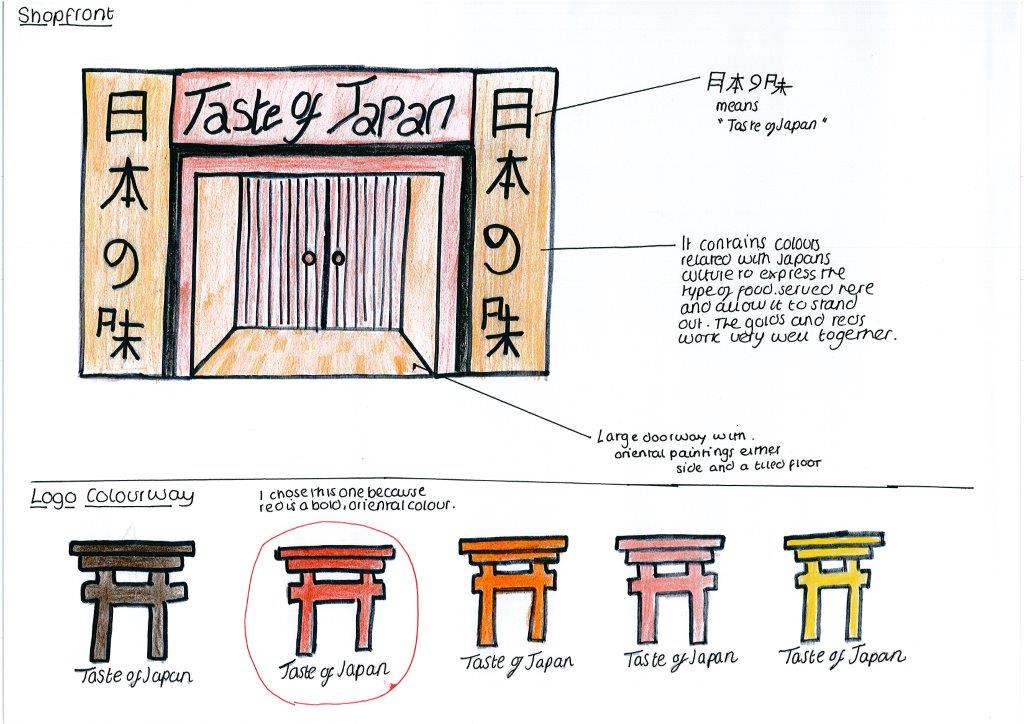 Shopfront
Taste of Japan
日本の味
日本の味
日本の味
means
"Taste of Japan"
It contains colours
related with Japans
culture to express the
type of food served here
and allow it to stand
out. The golds and reds
work very well together.
Large doorway with
oriental paintings either
side and a tiled floor
Logo Colourway
I chose this one because
red is a bold, oriental colour.
Taste of Japan
Taste of Japan
Taste of Japan
Taste of Japan
Taste of Japan